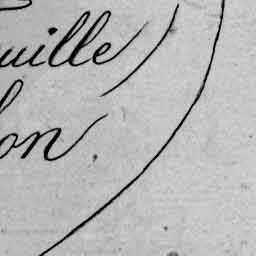 uille
on